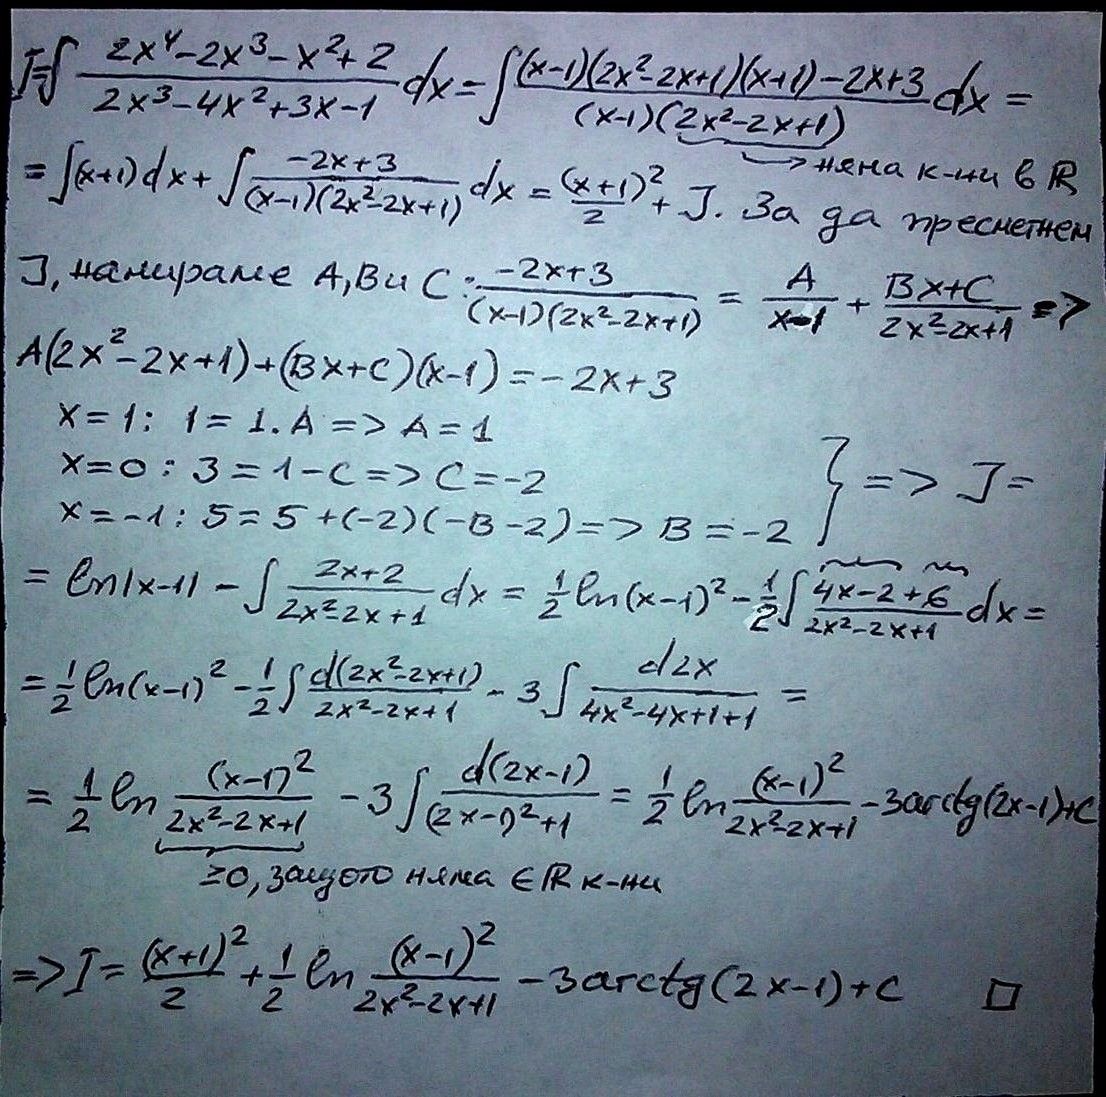 I=∫ (2x⁴-2x³-x²+2)/(2x³-4x²+3x-1) dx = ∫ ((x-1)(2x²-2x+1)(x+1)-2x+3)/((x-1)(2x²-2x+1)) dx =
→ няма к-ни в ℝ
= ∫(x+1)dx + ∫ (-2x+3)/((x-1)(2x²-2x+1)) dx = (x+1)²/2 + J. За да пресметнем
J, намираме A, B и C: (-2x+3)/((x-1)(2x²-2x+1)) = A/(x-1) + (Bx+C)/(2x²-2x+1) =>
A(2x²-2x+1)+(Bx+C)(x-1)=-2x+3
x=1: 1=1.A => A=1
x=0: 3=1-C => C=-2 } => J=
x=-1: 5=5+(-2)(-B-2) => B=-2
= ln|x-1| - ∫ (2x+2)/(2x²-2x+1) dx = 1/2 ln(x-1)² - 1/2 ∫ (4x-2+6)/(2x²-2x+1) dx =
= 1/2 ln(x-1)² - 1/2 ∫ d(2x²-2x+1)/(2x²-2x+1) - 3∫ d2x/(4x²-4x+1+1) =
= 1/2 ln (x-1)²/(2x²-2x+1) - 3∫ d(2x-1)/((2x-1)²+1) = 1/2 ln (x-1)²/(2x²-2x+1) - 3arctg(2x-1)+C
≥0, защото няма ∈ℝ к-ни
=> I = (x+1)²/2 + 1/2 ln (x-1)²/(2x²-2x+1) - 3arctg(2x-1)+C □